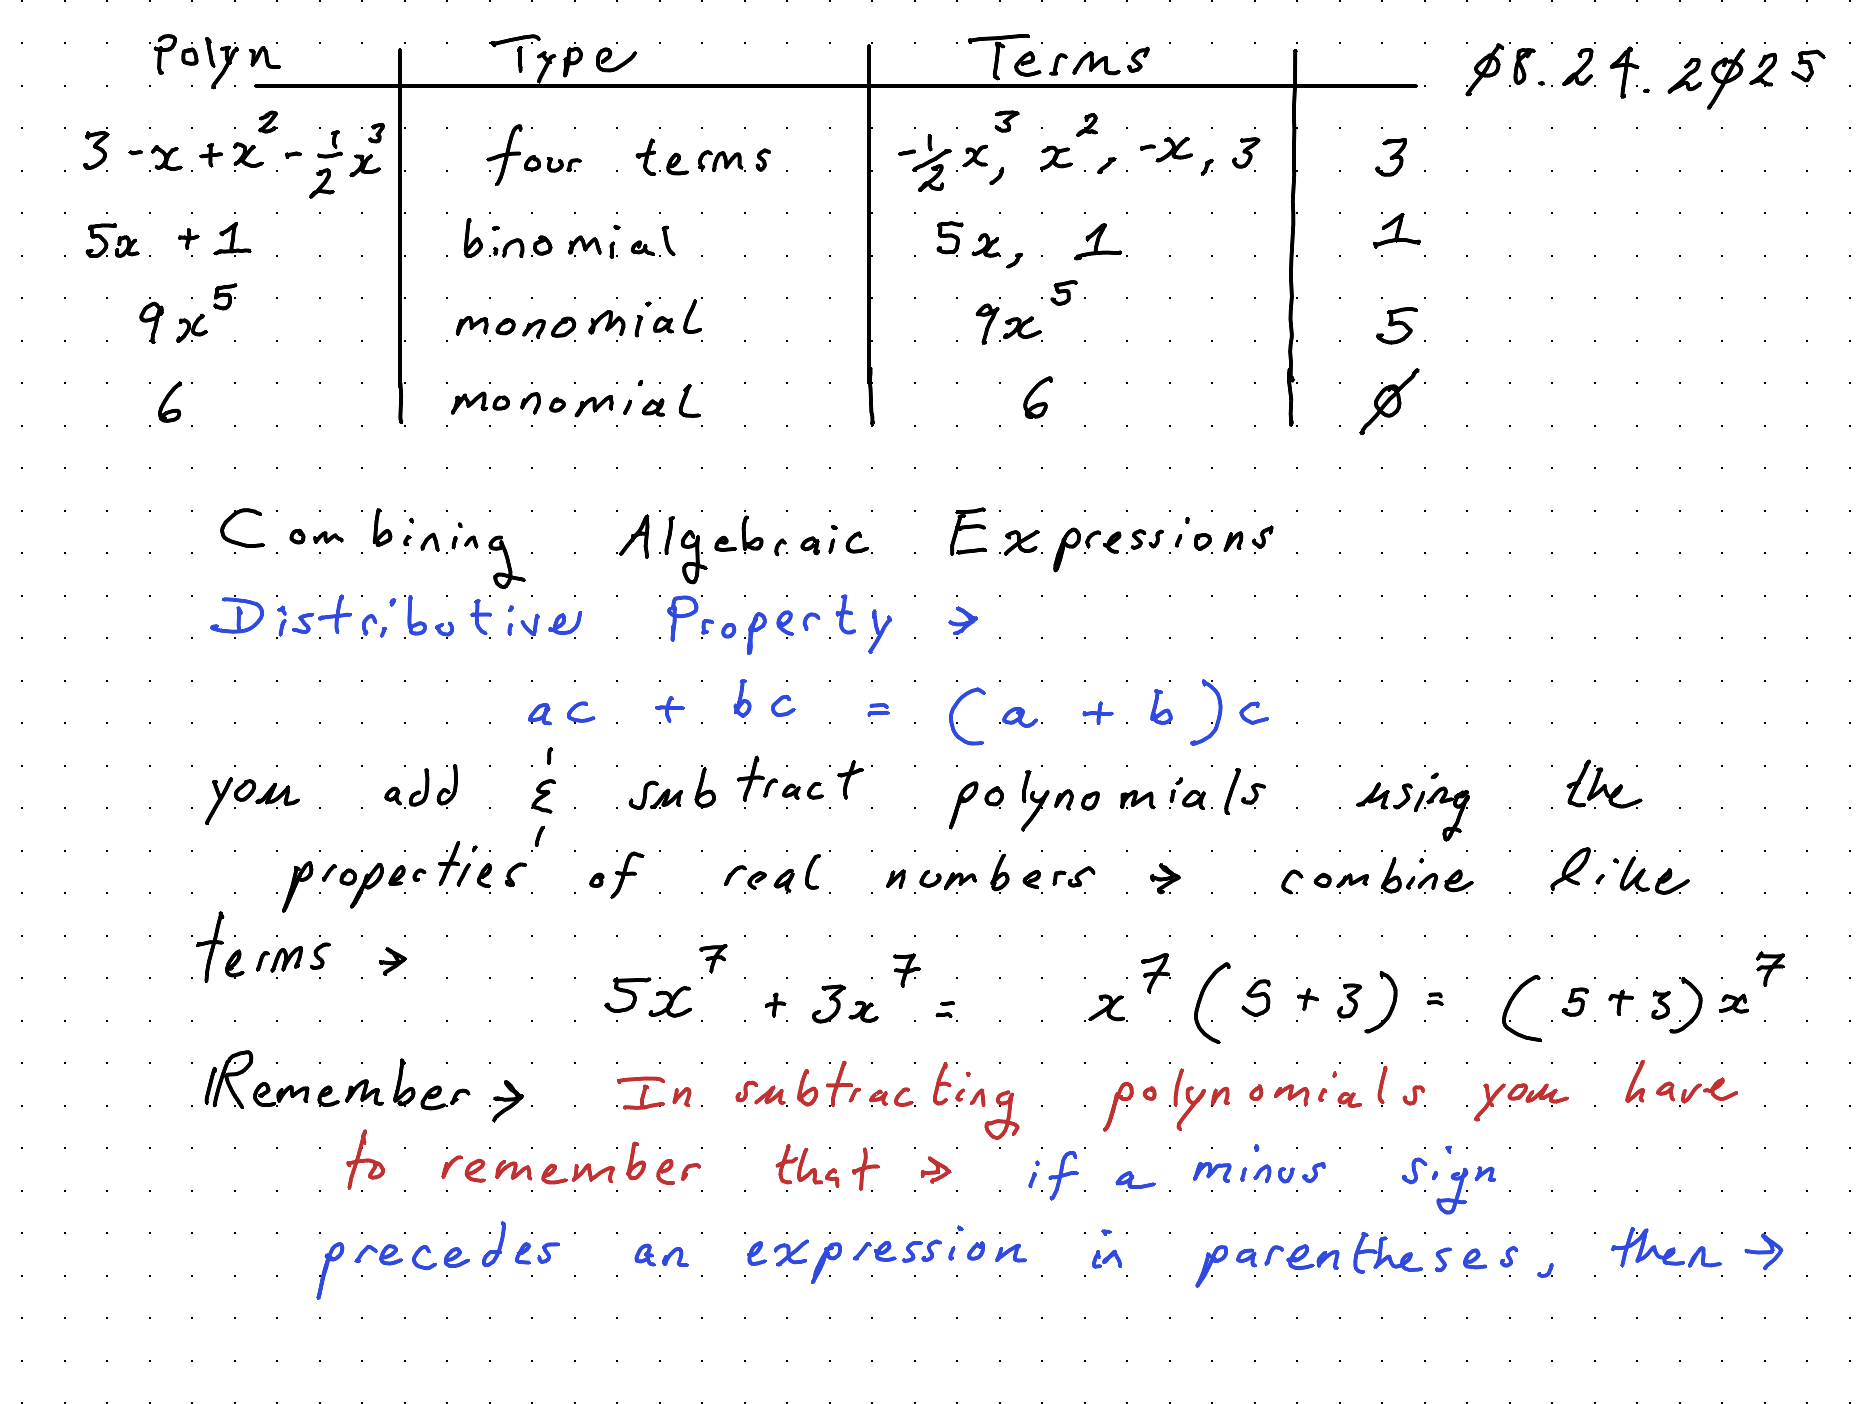 Polyn Type Terms ø8.24.2ø25
3 - x + x² - 1/2 x³ four terms -1/2 x³, x², -x, 3 3
5x + 1 binomial 5x, 1 1
9x⁵ monomial 9x⁵ 5
6 monomial 6 ø
Combining Algebraic Expressions
Distributive Property →
ac + bc = (a + b)c
you add & subtract polynomials using the
properties of real numbers → combine like
terms → 5x⁷ + 3x⁷ = x⁷(5 + 3) = (5 + 3)x⁷
Remember → In subtracting polynomials you have
to remember that → if a minus sign
precedes an expression in parentheses, then →